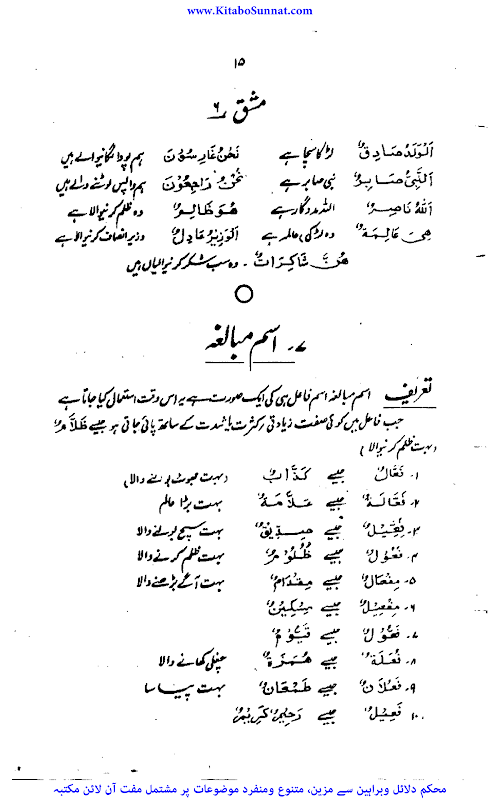 www.KitaboSunnat.com
۱۵
مشق ۶
اَلْوَلَدُ صَادِقٌ لڑکا سچا ہے نَحْنُ غَارِسُوْنَ ہم پودا لگانیوالے ہیں
اَلنَّبِیُّ صَابِرٌ نبی صابر ہے نَحْنُ رَاجِعُوْنَ ہم واپس لوٹنے والے ہیں
اَللّٰهُ نَاصِرٌ اللہ مددگار ہے هُوَ ظَالِمٌ وہ ظلم کرنیوالا ہے
هِیَ عَالِمَةٌ وہ لڑکی عالمہ ہے اَلْوَزِیْرُ عَادِلٌ وزیر انصاف کرنیوالا ہے
هُنَّ شَاكِرَاتٌ ۔ وہ سب شکر کرنیوالیاں ہیں
۷۔ اسم مبالغہ
تعریف اسم مبالغہ اسم فاعل ہی کی ایک صورت ہے یہ اس وقت استعمال کیا جاتا ہے
جب فاعل میں کوئی صفت زیادتی، کثرت یا شدت کے ساتھ پائی جاتی ہو جیسے ظَلَّامٌ
(بہت ظلم کرنیوالا)
۱۔ فَعَّالٌ جیسے كَذَّابٌ (بہت جھوٹ بولنے والا)
۲۔ فَعَّالَةٌ جیسے عَلَّامَةٌ بہت بڑا عالم
۳۔ فِعِّیْلٌ جیسے صِدِّیْقٌ بہت سچ بولنے والا
۴۔ فَعُوْلٌ جیسے ظُلُوْمٌ بہت ظلم کرنے والا
۵۔ مِفْعَالٌ جیسے مِقْدَامٌ بہت آگے بڑھنے والا
۶۔ مِفْعِیْلٌ جیسے مِسْكِیْنٌ
۷۔ فَعُّوْلٌ جیسے قَیُّوْمٌ
۸۔ فُعَلَةٌ جیسے هُمَزَةٌ چغلی کھانے والا
۹۔ فَعْلَانٌ جیسے طَمْعَانٌ بہت پیاسا
۱۰۔ فَعِیْلٌ جیسے رَحِیْمٌ كَرِیْمٌ
محکم دلائل وبراہین سے مزین، متنوع ومنفرد موضوعات پر مشتمل مفت آن لائن مکتبہ